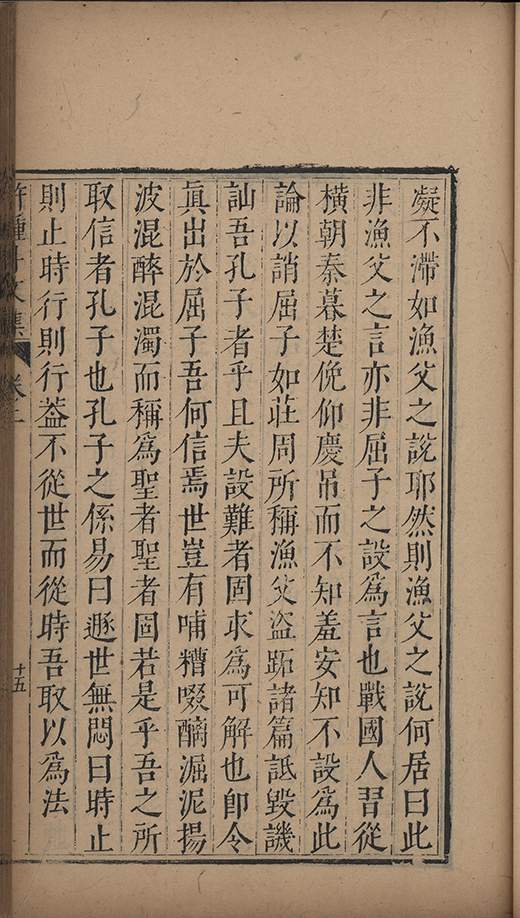 凝不滯如漁父之說耶然則漁父之說何居曰此
非漁父之言亦非屈子之設爲言也戰國人習從
橫朝秦暮楚俛仰慶吊而不知羞安知不設爲此
論以誚屈子如莊周所稱漁父盗跖諸篇詆毀譏
訕吾孔子者乎且夫設難者固求爲可解也卽令
眞出於屈子吾何信焉世豈有哺糟啜醨淈泥揚
波混醉混濁而稱爲聖者聖者固若是乎吾之所
取信者孔子也孔子之係易曰遯世無悶曰時止
則止時行則行葢不從世而從時吾取以爲法
許鍾斗文集 卷二
十五